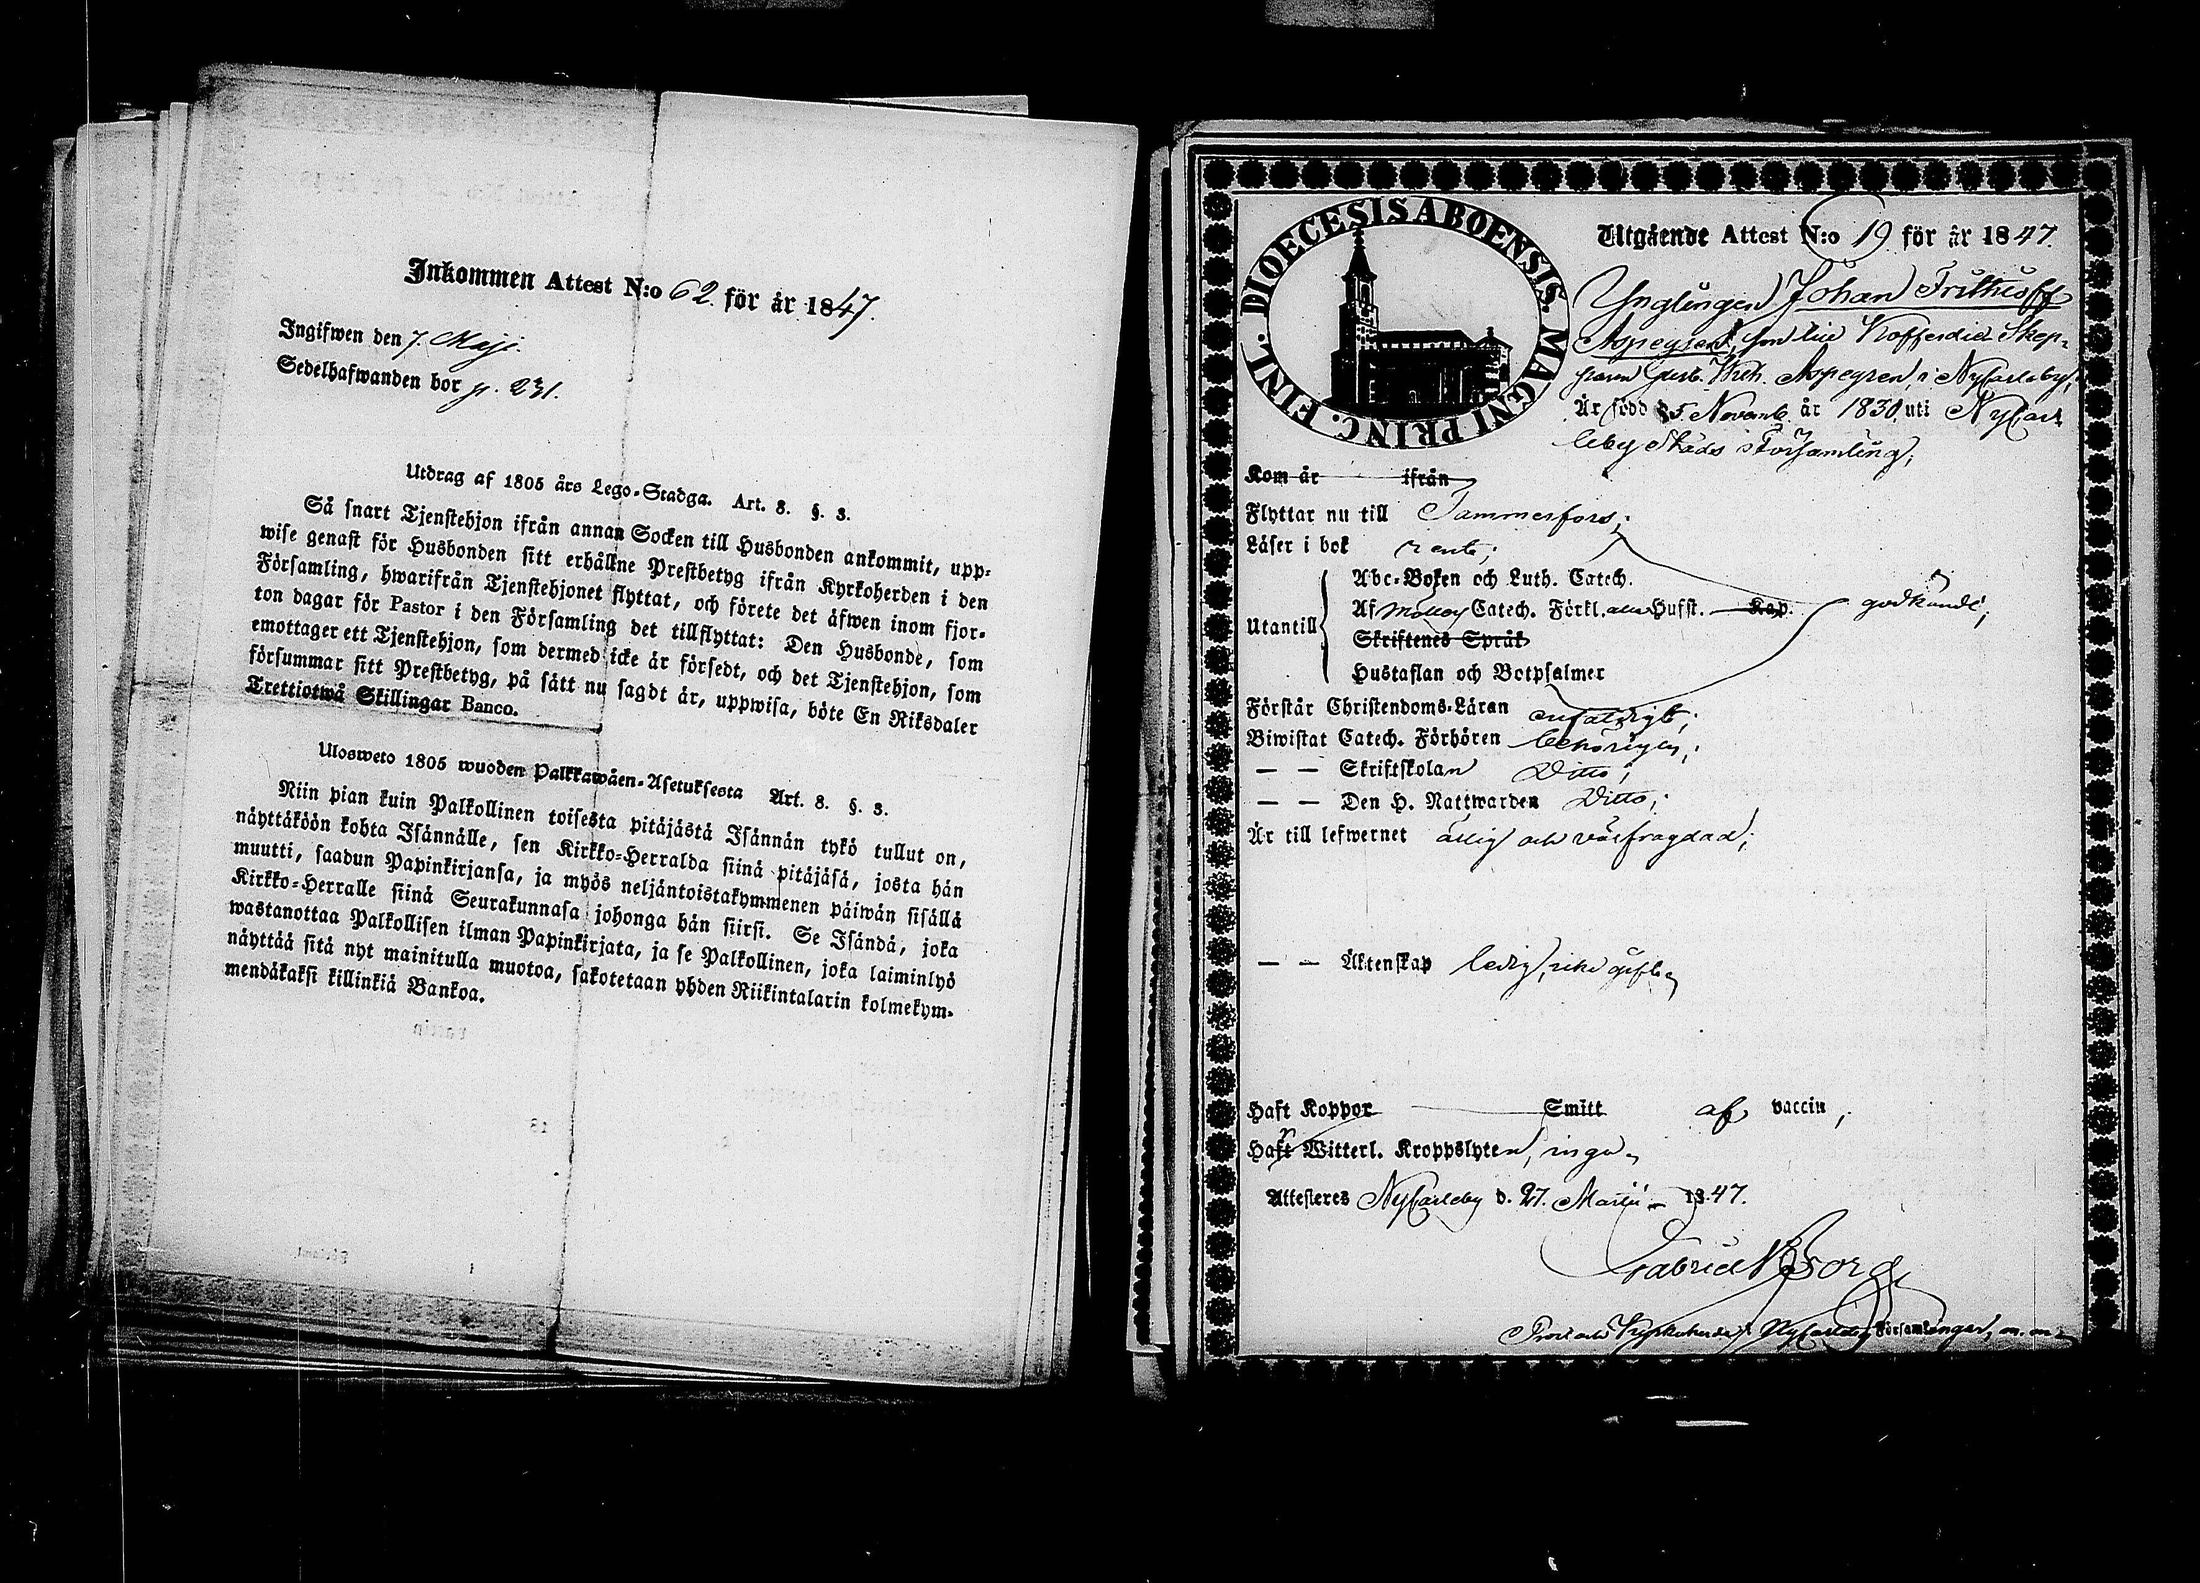 Inkommen Attest N:o 62. för år 1847.
Ingifwen den 7. Maji.
Sedelhafwanden bor p. 231.
Utdrag af 1805 års Lego-Stadga. Art. 8. §. 3.
Så snart Tjenstehjon ifrån annan Socken till Husbonden ankommit, upp-
wise genast för Husbonden sitt erhållne Prestbetyg ifrån Kyrkoherden i den
Församling, hwarifrån Tjenstehjonet flyttat, och förete det äfwen inom fjor-
ton dagar för Pastor i den Församling det tillflyttat: Den Husbonde, som
emottager ett Tjenstehjon, som dermed icke är försedt, och det Tjenstehjon, som
försummar sitt Prestbetyg, på sätt nu sagdt är, uppwisa, böte En Riksdaler
Trettiotwå Skillingar Banco.
Ulosweto 1805 wuoden Palkkawäen-Asetuksesta Art. 8. §. 3.
Niin pian kuin Palkollinen toisesta pitäjästä Isännän tykö tullut on,
näyttäköön kohta Isännälle, sen Kirkko-Herralda siinä pitäjäsä, josta hän
muutti, saadun Papinkirjansa, ja myös neljäntoistakymmenen päiwän sisällä
Kirkko-Herralle siinä Seurakunnasa johonga hän siirsi. Se Isändä, joka
wastanottaa Palkollisen ilman Papinkirjata, ja se Palkollinen, joka laiminlyö
näyttää sitä nyt mainitulla muotoa, sakotetaan yhden Riikintalarin kolmekym-
mendäkaksi killinkiä Bankoa.
FINL. DIOECESIS ABOENSIS. MAGNI PRINC.
Utgående Attest N:o 19 för år 1847.
Ynglingen Johan Frithioff
Aspegren, son till Kofferdie Skep-
paren Aspegren, i NyCarleby,
Är född 25 Novemb. år 1830, uti NyCar
leby Stads Församling;
Kom år ifrån
Flyttar nu till Tammerfors;
Läser i bok rent;
Utantill
Abc-Boken och Luth. Catech.
Af Möllers Catech. Förkl. alla Hufst. Kap.
godkändt;
Skriftenes Språk
Hustaflan och Botpsalmer
Förstår Christendoms-Läran enfaldigt;
Biwistat Catech. Förhören behörigen;
— — Skriftskolan Ditto;
— — Den H. Nattwarden Ditto;
Är till lefwernet ärlig och välfrägdad;
— — Äktenskap ledig,
Haft Koppor Smitt af vaccin,
Haft Witterl. Kroppslyten, inga.
Attesteres NyCarleby d. 27. Martii 1847.
Gabriel Borg
Prost och Kyrkoherde i NyCarleby Församlingar, m. m.